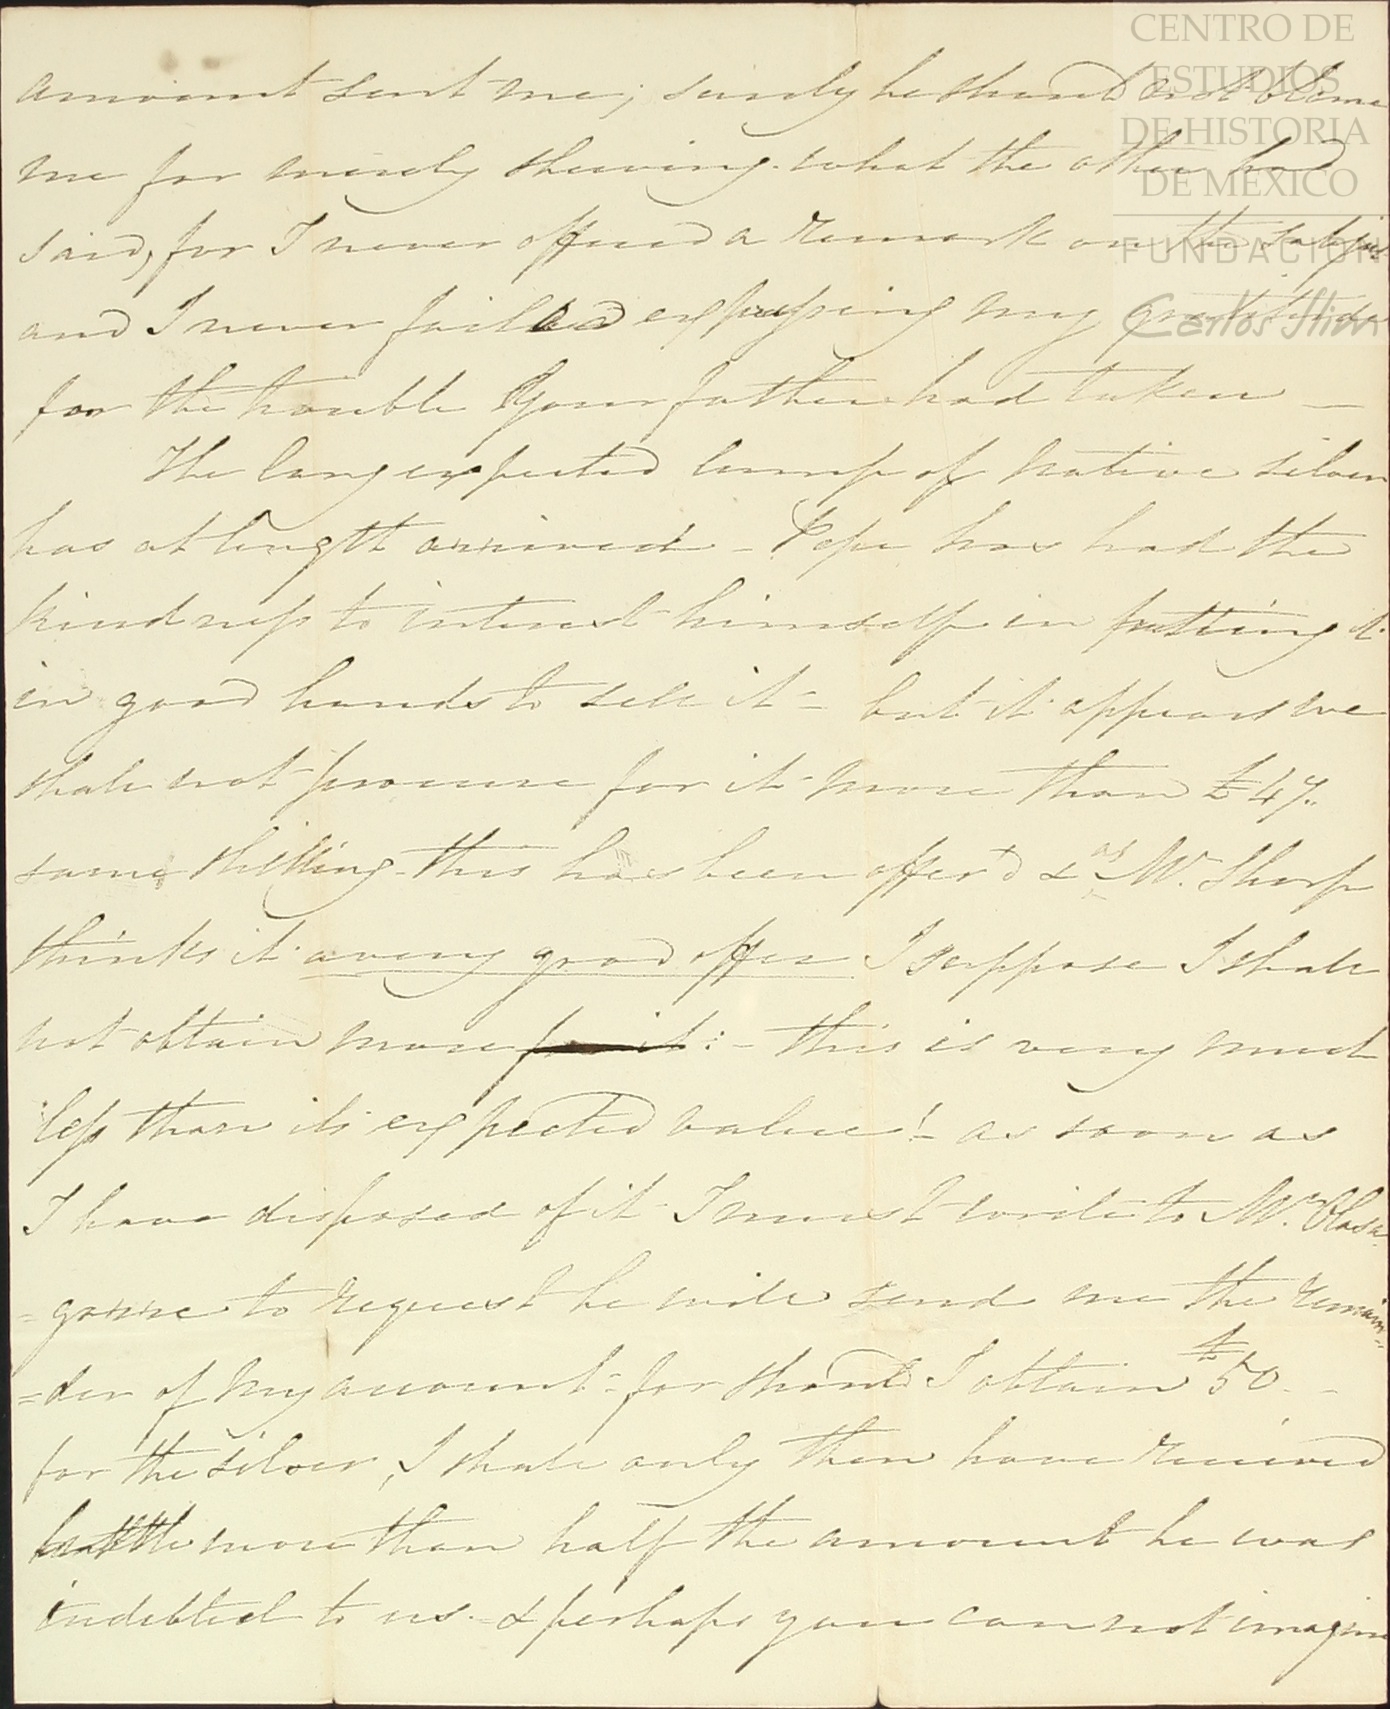 CENTRO DE
ESTUDIOS
DE HISTORIA
DE MÉXICO
FUNDACIÓN
Carlos Slim
amount sent me; surely he should not blame
me for merely shewing what the other had
said, for I never offered a remark on the subject
and I never failed expressing my gratitude
for the trouble Your father had taken —
The long expected lump of native silver
has at length arrived - Pepe has had the
kindness to interest himself in putting it
in good hands to sell it - but it appears we
shall not procure for it more than £47..
some shilling - this has been offer'd & as Mr. Sharp
thinks it a very good offer I suppose I shall
not obtain more for it: - this is very much
less than its expected value! - as soon as
I have disposed of it I must write to Mr. Olasa-
=garre to request he will send me the remain-
=der of my account - for should I obtain £50 -
for the silver, I shall only then have received
little more than half the amount he was
indebted to us. - & perhaps you can not imagine